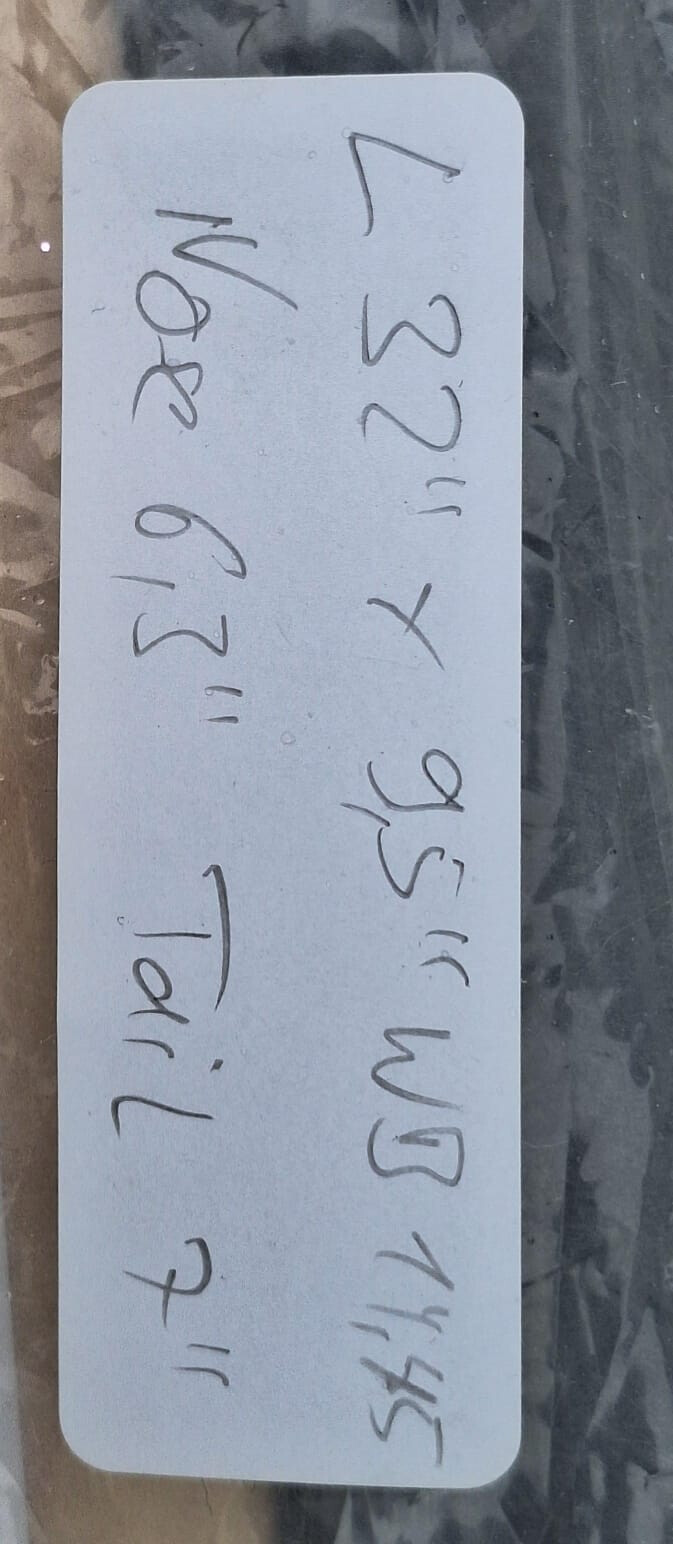 L 32" x 9,5" WB 14,45
Nose 6,3" Tail 7"